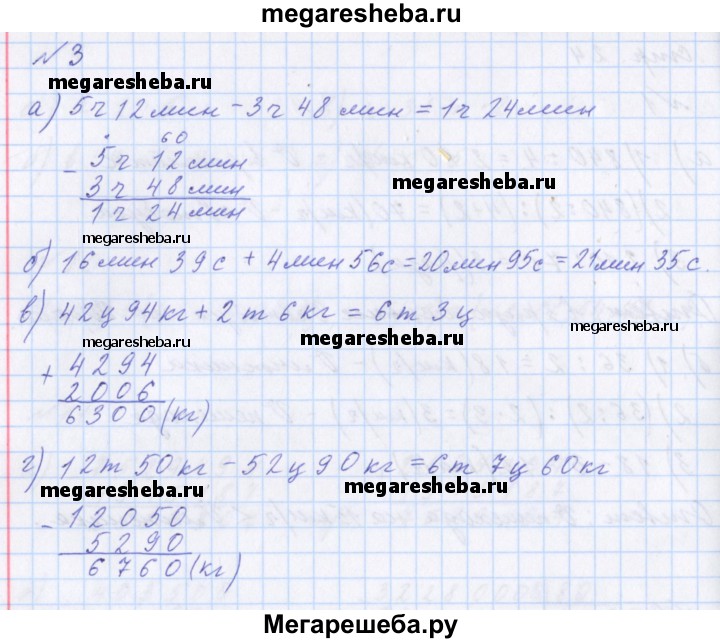 megaresheba.ru
№ 3
megaresheba.ru
а) 5ч 12мин - 3ч 48 мин = 1ч 24мин
60
- 5ч 12мин
3ч 48мин
megaresheba.ru
1ч 24мин
megaresheba.ru
б) 16мин 39с + 4мин 56с = 20мин 95с = 21мин 35с.
в) 42ц 94кг + 2т 6кг = 6т 3ц
megaresheba.ru
megaresheba.ru
+ 4294
2006
6300(кг)
г) 12т 50кг - 52ц 90кг = 6т 7ц 60кг
megaresheba.ru
megaresheba.ru
- 12050
5290
6760(кг)
Мегарешеба.ру